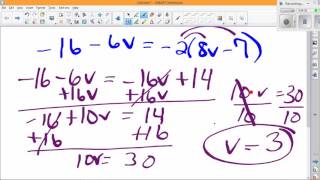 -16 - 6v = -2(8v - 7)
-16 - 6v = -16v + 14
+16v +16v
-16 + 10v = 14
+16 +16
10v = 30
10v = 30
10 10
v = 3